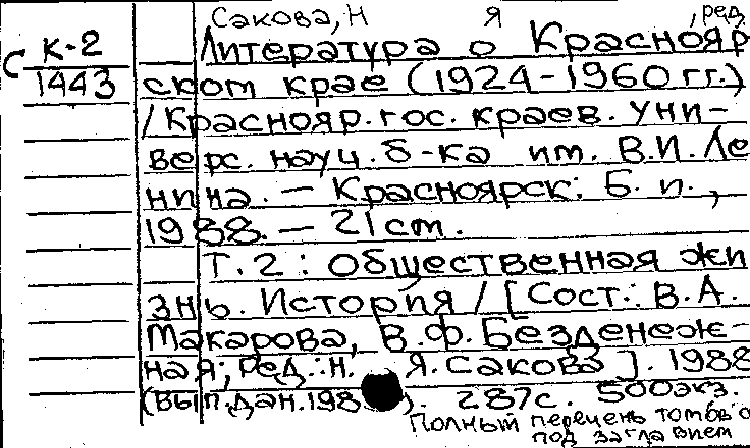 Сакова, Н Я , ред
С К-2
1443
Литература о Краснояр
ском крае (1924-1960 гг.)
/ Краснояр. гос. краев. уни-
верс. науч. б-ка им. В.И. Ле
нина. — Красноярск: Б. и.,
1988. — 21 cm.
Т. 2 : Общественная жи
знь. История / [Сост.: В.А.
Макарова, В.Ф. Безденеж-
ная; Ред.: Н. Я. Сакова ]. 1988
(Вып. дан. 198 ). 287 с. 500 экз.
Полный перечень томов о
под заглавием